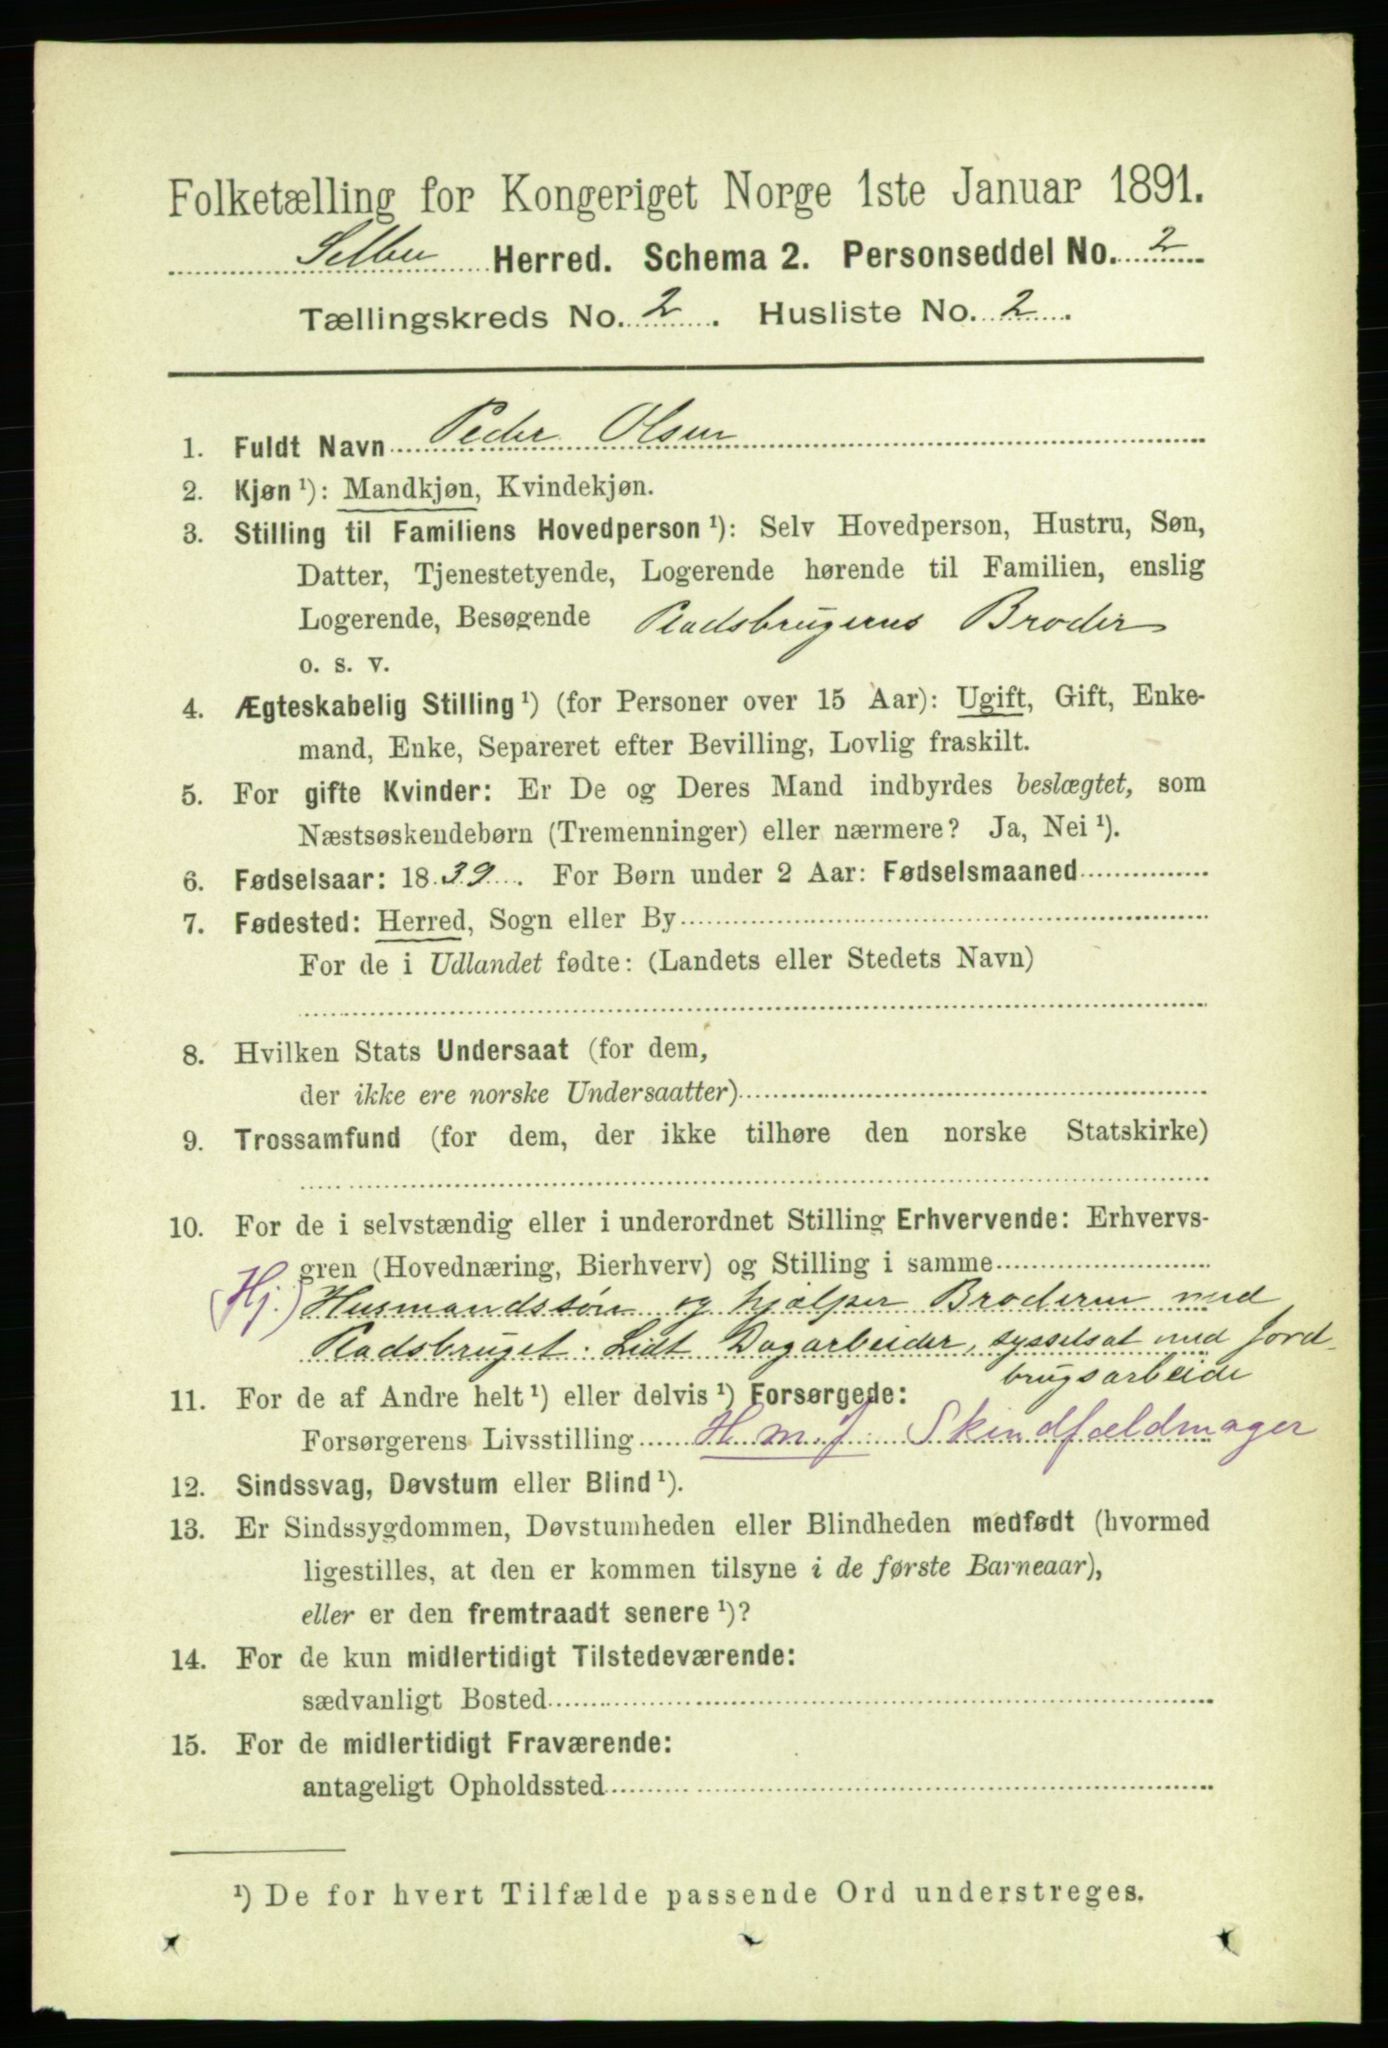 Folketælling for Kongeriget Norge 1ste Januar 1891.
Selbu Herred. Schema 2. Personseddel No. 2
Tællingskreds No. 2. Husliste No. 2.
1. Fuldt Navn Peder Olsen
2. Kjøn ¹): Mandkjøn, Kvindekjøn.
3. Stilling til Familiens Hovedperson ¹): Selv Hovedperson, Hustru, Søn,
Datter, Tjenestetyende, Logerende hørende til Familien, enslig
Logerende, Besøgende Pladsbrugerens Broder
o. s. v.
4. Ægteskabelig Stilling ¹) (for Personer over 15 Aar): Ugift, Gift, Enke-
mand, Enke, Separeret efter Bevilling, Lovlig fraskilt.
5. For gifte Kvinder: Er De og Deres Mand indbyrdes beslægtet, som
Næstsøskendebørn (Tremenninger) eller nærmere? Ja, Nei ¹).
6. Fødselsaar: 1839. For Børn under 2 Aar: Fødselsmaaned
7. Fødested: Herred, Sogn eller By
For de i Udlandet fødte: (Landets eller Stedets Navn)
8. Hvilken Stats Undersaat (for dem,
der ikke ere norske Undersaatter)
9. Trossamfund (for dem, der ikke tilhøre den norske Statskirke)
10. For de i selvstændig eller i underordnet Stilling Erhvervende: Erhvervs-
gren (Hovednæring, Bierhverv) og Stilling i samme
(Hj.) Husmandssøn og hjælper Broderen med
Pladsbruget. Lidt Dagarbeider, sysselsat med Jord-
brugsarbeide
11. For de af Andre helt ¹) eller delvis ¹) Forsørgede:
Forsørgerens Livsstilling H. m. J. Skindfældmager
12. Sindssvag, Døvstum eller Blind ¹).
13. Er Sindssygdommen, Døvstumheden eller Blindheden medfødt (hvormed
ligestilles, at den er kommen tilsyne i de første Barneaar),
eller er den fremtraadt senere ¹)?
14. For de kun midlertidigt Tilstedeværende:
sædvanligt Bosted
15. For de midlertidigt Fraværende:
antageligt Opholdssted
¹) De for hvert Tilfælde passende Ord understreges.